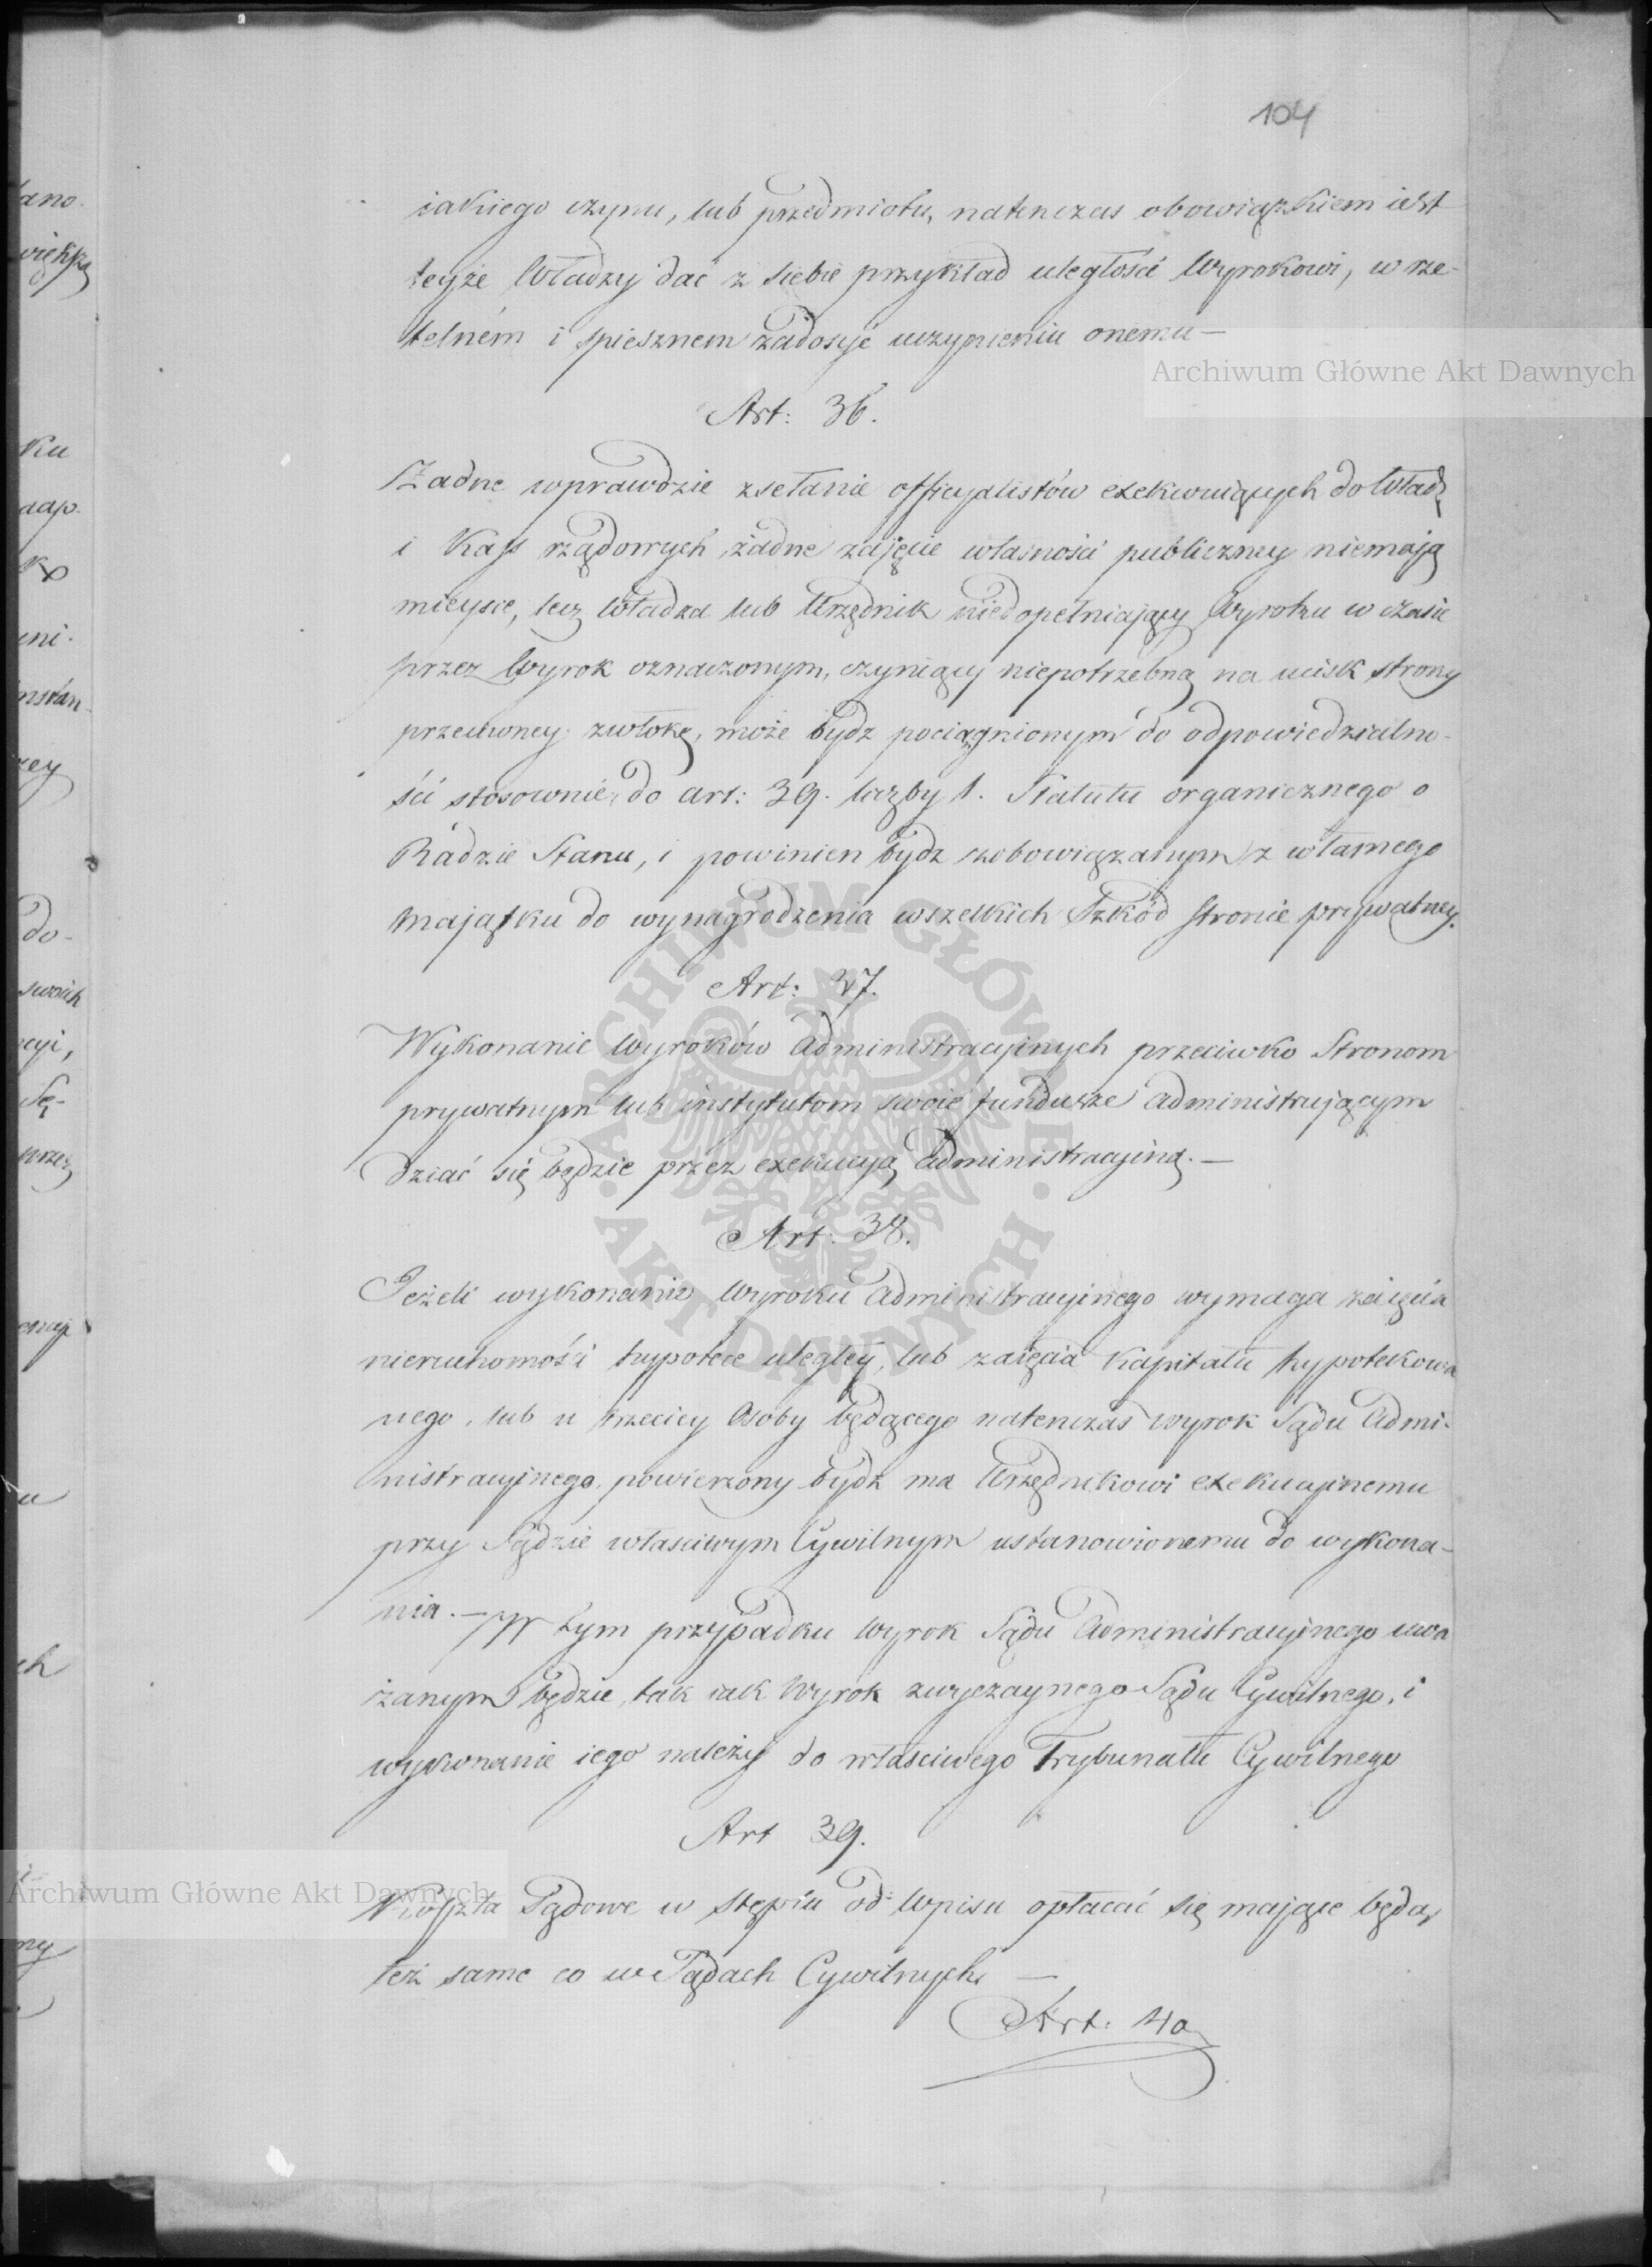 104
iakiego czynu, lub przedmiotu, natenczas obowiązkiem iest
teyże Władzy dać z siebie przykład uległości Wyrokowi, w rze-
telném i spiesznem zadosyć uczynieniu onemu —
Art: 36.
Żadne wprawdzie zsełanie officyalistów exekwuiących do Władz
i Kass rządowych, żadne zajęcie własności publiczney niemają
mieysce, lecz Władza lub Urzędnik niedopełniający Wyroku w czasie
przez Wyrok oznaczonym, czyniący niepotrzebną na ucisk strony
przeciwney zwłokę, może bydz pociągnionym do odpowiedzialno-
ści stosownie do art: 39. liczby 1. Statutu organicznego o
Radzie Stanu, i powinien bydz zobowiązanym z własnego
majątku do wynagrodzenia wszelkich szkód stronie prywatney.
Art: 37.
Wykonanie Wyroków Administracyinych przeciwko Stronom
prywatnym lub instytutom swoie fundusze administrującym
dziać się będzie przez exekucyą administracyiną. —
Art: 38.
Jeżeli wykonanie Wyroku Administracyinego wymaga zaięcia
nieruchomości hypotece uległey, lub zaięcia Kapitału hypotekowa
nego, lub u trzeciey Osoby będącego natenczas wyrok Sądu Admi-
nistracyinego powierzony bydz ma Urzędnikowi exekucyinemu
przy Sądzie właściwym Cywilnym ustanowionemu do wykona-
nia. — W tym przypadku Wyrok Sądu Administracyinego uwa
żanym będzie, tak iak Wyrok zwyczaynego Sądu Cywilnego, i
wykonanie iego należy do właściwego Trybunału Cywilnego
Art 39.
Koszta Sądowe w Stęplu od Wpisu opłacać się mające będą
też same co w Sądach Cywilnych. —
Art: 40
Archiwum Główne Akt Dawnych
Archiwum Główne Akt Dawnych
ARCHIWUM GŁÓWNE
AKT DAWNYCH